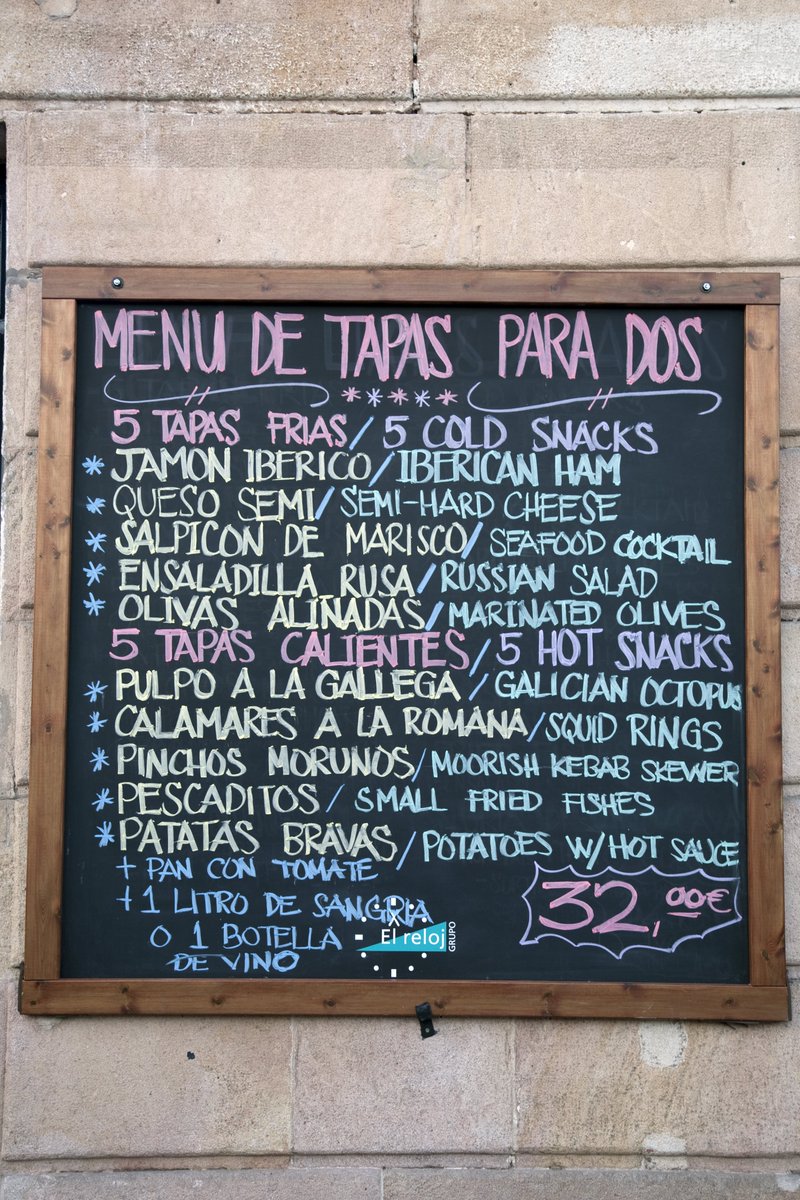 MENU DE TAPAS PARA DOS
5 TAPAS FRIAS / 5 COLD SNACKS
* JAMON IBERICO / IBERICAN HAM
* QUESO SEMI / SEMI-HARD CHEESE
* SALPICON DE MARISCO / SEAFOOD COCKTAIL
* ENSALADILLA RUSA / RUSSIAN SALAD
* OLIVAS ALIÑADAS / MARINATED OLIVES
5 TAPAS CALIENTES / 5 HOT SNACKS
* PULPO A LA GALLEGA / GALICIAN OCTOPUS
* CALAMARES A LA ROMANA / SQUID RINGS
* PINCHOS MORUNOS / MOORISH KEBAB SKEWER
* PESCADITOS / SMALL FRIED FISHES
* PATATAS BRAVAS / POTATOES W/HOT SAUCE
+ PAN CON TOMATE
+ 1 LITRO DE SANGRIA
O 1 BOTELLA
DE VINO
32,00€
El reloj
GRUPO